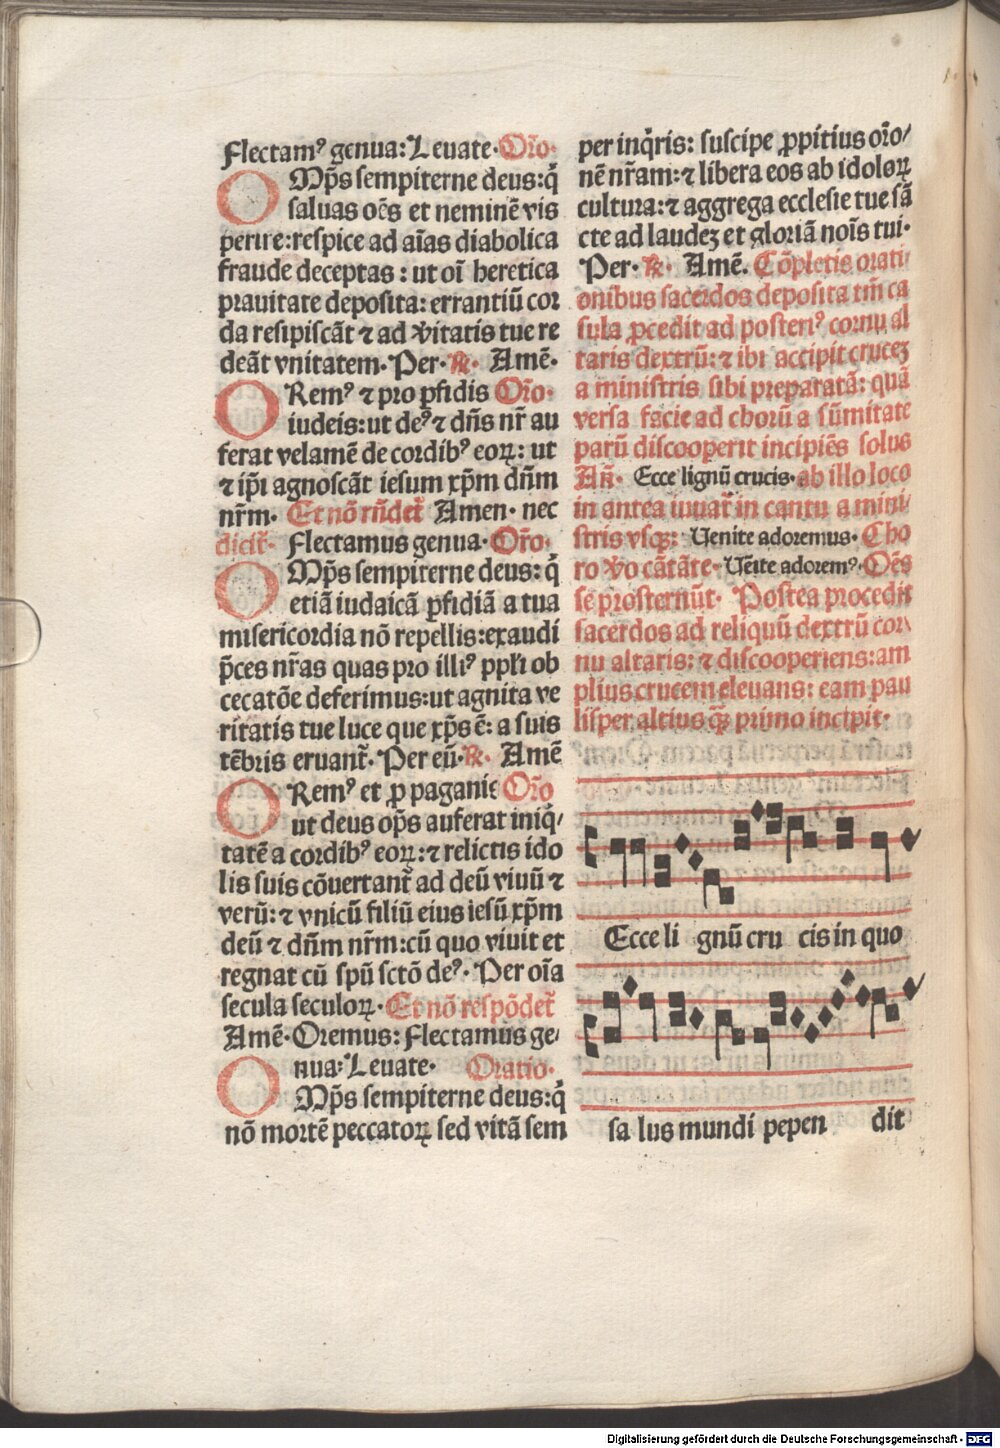 Flectamꝰ genua: Leuate. Or̄o.
OMp̄s sempiterne deus: q̄
saluas oēs et neminē vis
perire: respice ad aīas diabolica
fraude deceptas: ut oī heretica
prauitate deposita: errantiū cor
da resipiscāt ⁊ ad v̄itatis tue re
deāt vnitatem. Per. ℞. Amē.
ORemꝰ ⁊ pro ꝑfidis Or̄o.
iudeis: ut deꝰ ⁊ dn̄s nr̄ au
ferat velamē de cordibꝰ eoꝝ: ut
⁊ ip̄i agnoscāt iesum xp̄m dn̄m
nr̄m. Et nō rn̄det̄ Amen. nec
dicit̄. Flectamus genua. Or̄o.
OMp̄s sempiterne deus: q̄
etiā iudaicā ꝑfidiā a tua
misericordia nō repellis: exaudi
p̄ces nr̄as quas pro illiꝰ pp̄li ob
cecatōe deferimus: ut agnita ve
ritatis tue luce que xp̄s ē: a suis
tēbris eruant̄. Per eū. ℞. Amē
ORemꝰ et ꝓ paganis Or̄o
ut deus op̄s auferat iniq̄/
tatē a cordibꝰ eoꝝ: ⁊ relictis ido
lis suis cōuertant̄ ad deū viuū ⁊
verū: ⁊ vnicū filiū eius iesū xp̄m
deū ⁊ dn̄m nr̄m: cū quo viuit et
regnat cū sp̄u sctō deꝰ. Per oīa
secula seculoꝝ. Et nō respōdet̄
Amē. Oremus: Flectamus ge/
nua: Leuate. Oratio.
OMp̄s sempiterne deus: q̄
nō mortē peccatoꝝ sed vitā sem
per inq̄ris: suscipe ꝓpitius or̄o/
nē nr̄am: ⁊ libera eos ab idoloꝝ
cultura: ⁊ aggrega ecclesie tue sā
cte ad laudeꝫ et gloriā nōis tui.
Per. ℞. Amē. Cōpletis orati
onibus sacerdos deposita tm̄ ca
sula ꝓcedit ad posteriꝰ cornu al
taris dextrū: ⁊ ibi accipit cruceꝫ
a ministris sibi preparatā: quā
versa facie ad chorū a sūmitate
parū discooperit incipiēs solus
An̄. Ecce lignū crucis. ab illo loco
in antea iuuat̄ in cantu a mini/
stris vsqꝫ: Uenite adoremus. Cho
ro v̄o cātāte. Uēite adoremꝰ. Oēs
se prosternūt. Postea procedit
sacerdos ad reliquū dextrū cor
nu altaris: ⁊ discooperiens: am
plius crucem eleuans: eam pau
lisper altius qꝫ primo incipit.
Ecce li gnū cru cis in quo
sa lus mundi pepen dit
Digitalisierung gefördert durch die Deutsche Forschungsgemeinschaft - DFG